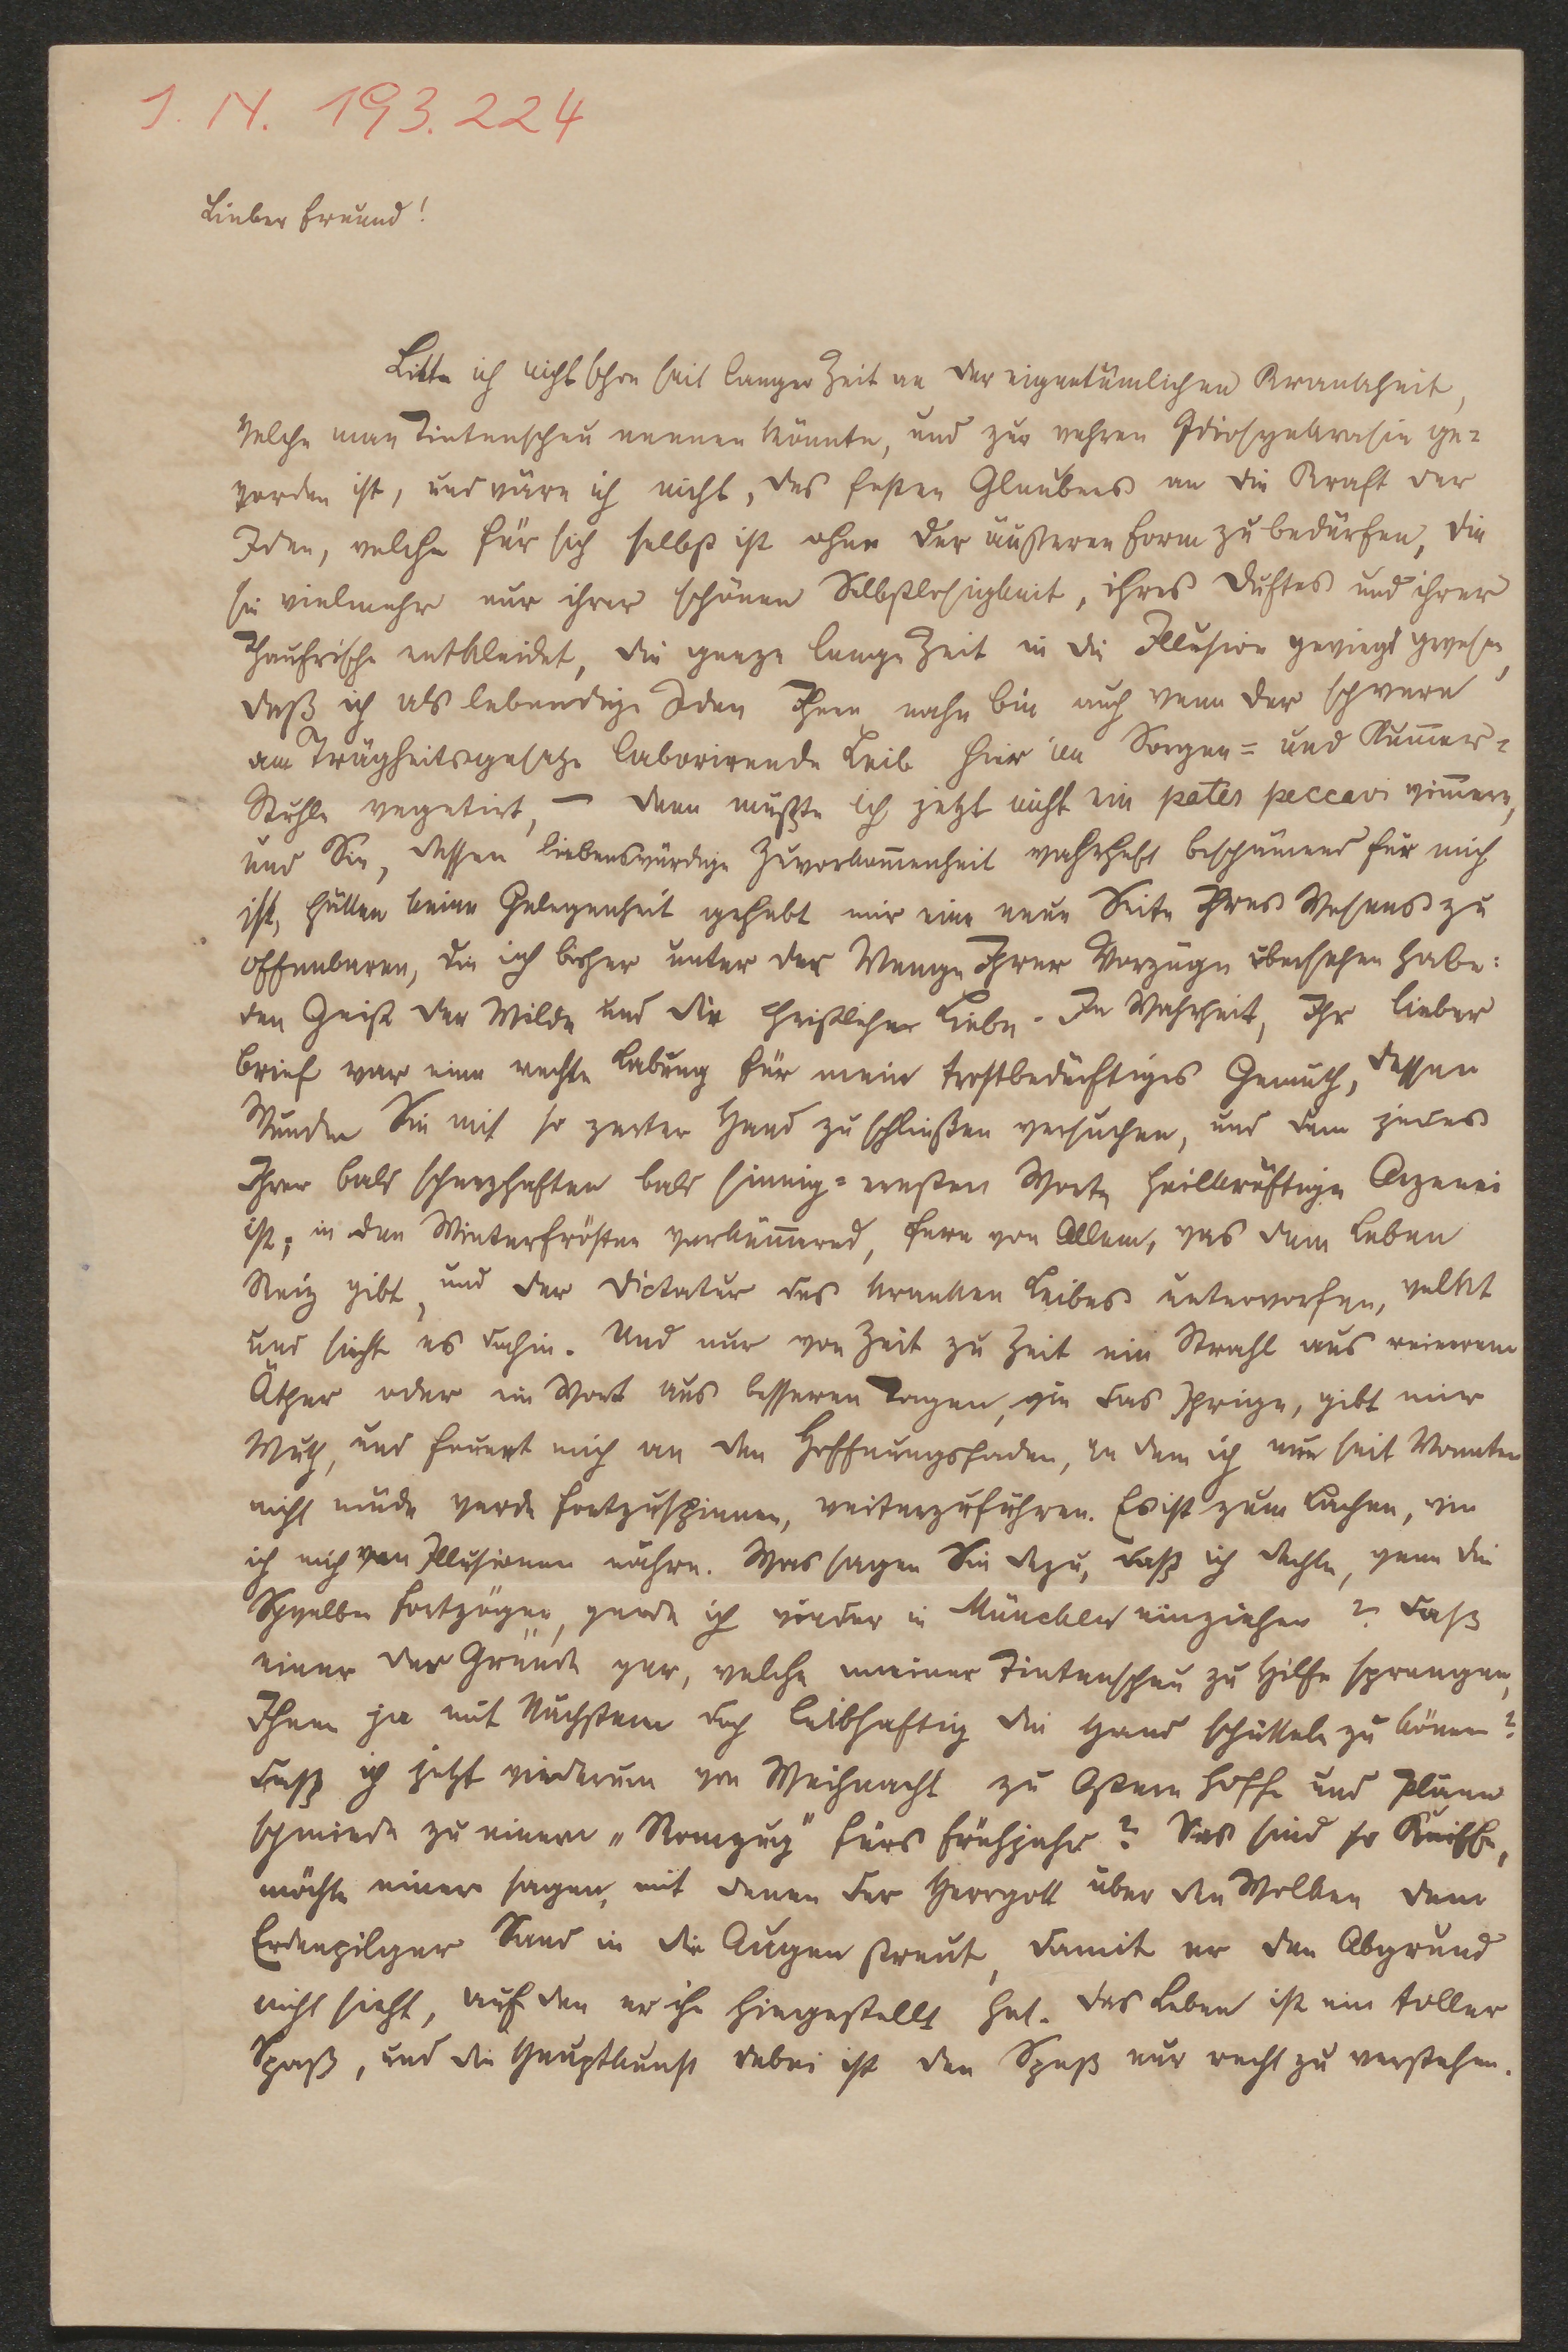 J. N. 193.224
Lieber Freund!
Litte ich nicht schon seit langer Zeit an der eigentümlichen Krankheit,
welche man Tintenscheu nennen könnte, und zur wahren Idiosynkrasie ge-
worden ist, und wäre ich nicht, des festen Glaubens an die Kraft der
Idee, welche für sich selbst ist ohne der äußeren Form zu bedürfen, die
sie vielmehr nur ihrer schönen Selbstlosigkeit, ihres Duftes und ihrer
Thaufrische entkleidet, die ganze lange Zeit in die Illusion gewiegt gewesen,
daß ich als lebendige Idee Ihnen nahe bin auch wenn der schwere
am Trägheitsgesetze laborirende Leib hier im Sorgen- und Kummer-
Stuhle vegetirt, – dann müßte ich jetzt nicht ein pater peccavi wimmern,
und Sie, dessen liebenswürdige Zuvorkommenheit wahrhaft beschämend für mich
ist, hätten keine Gelegenheit gehabt mir eine neue Seite Ihres Wesens zu
offenbaren, die ich bisher unter der Menge Ihrer Vorzüge übersehen habe:
den Geist der Milde und die christlicher Liebe. In Wahrheit, Ihr lieber
Brief war eine rechte Labung für mein trostbedürftiges Gemüth, dessen
Wunden Sie mit so zarter Hand zu schließen versuchen, und dem jedes
Ihrer bald scherzhaften bald sinnig-ernsten Worte heilkräftige Arzenei
ist; in den Winterfrösten verkümmernd, fern von Allem, was dem Leben
Reiz gibt, und der Dictatur des kranken Leibes unterworfen, welkt
und siecht es dahin. Und nur von Zeit zu Zeit ein Strahl aus reinerem
Äther oder ein Wort aus besseren Tagen, wie das Ihrige, gibt mir
Muth, und feuert mich an den Hoffnungsfaden, an dem ich nun seit Monaten
nicht müde werde fortzuspinnen, weiterzuführen. Es ist zum Lachen, wie
ich mich von Illusionen nähre. Was sagen Sie dazu, daß ich dachte, wenn die
Schwalben fortzögen, werde ich wieder in München einziehen? daß
einer der Gründe war, welche meiner Tintenscheu zu Hilfe sprangen,
Ihnen ja mit Nächstem doch leibhaftig die Hand schütteln zu können?
daß ich jetzt wiederum von Weihnacht zu Ostern hoffe und Pläne
schmiede zu einem „Romzug" fürs Frühjahr? Das sind so Kniffe,
möchte einer sagen, mit denen der Herrgott über den Wolken dem
Erdenpilger Sand in die Augen streut, damit er den Abgrund
nicht sieht, auf den er ihn hingestellt hat. Das Leben ist ein toller
Spaß, und die Hauptkunst dabei ist den Spaß nur recht zu verstehen.